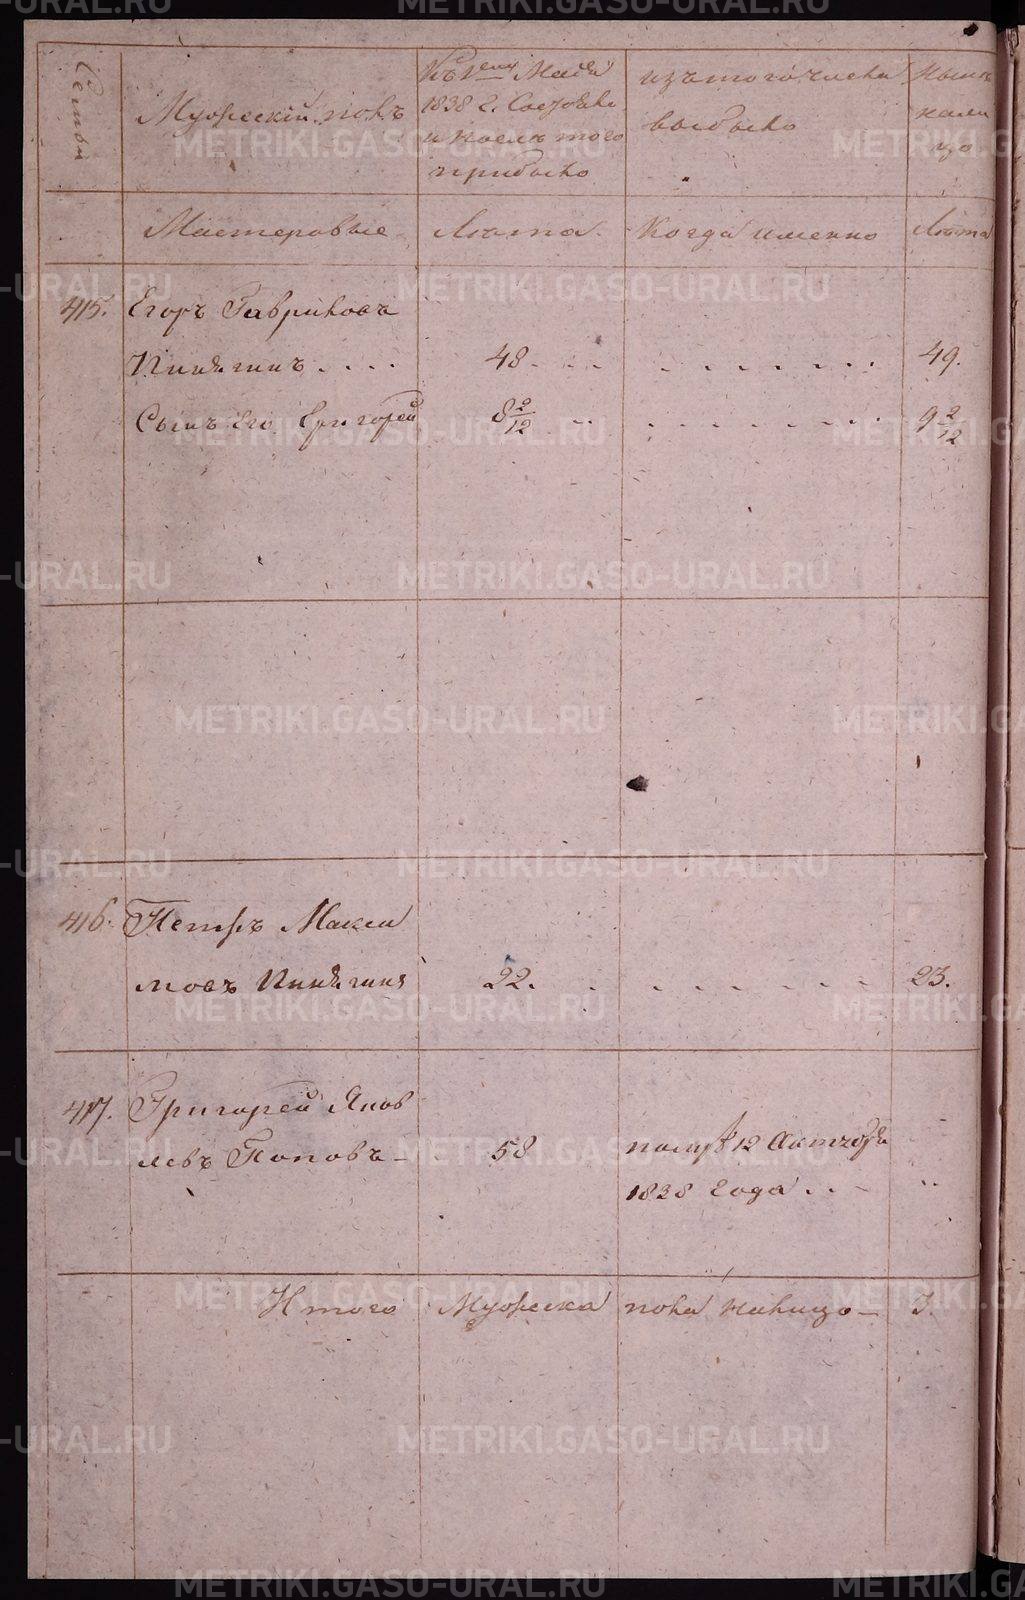 Семьи
Мужескій полъ
Къ 1 ему Маія
1838 г. Состояло
и после того
прибыло
изъ того числа
выбыло
Ныне
нали
цо
Мастеровые
Лѣта
Когда именно
Лѣта
415. Егоръ Гавриловъ
Пинягинъ . . . . 48 . . . . 49.
Сынъ его Григорей 8 2/12 9 2/12
416. Петръ Макси
мовъ Пинягинъ 22. 23.
417. Григорей Яков
левъ Поповъ 58 помръ 12 Октября
1838 года . .
Итого Мужеска пола налицо 3.
METRIKI.GASO-URAL.RU